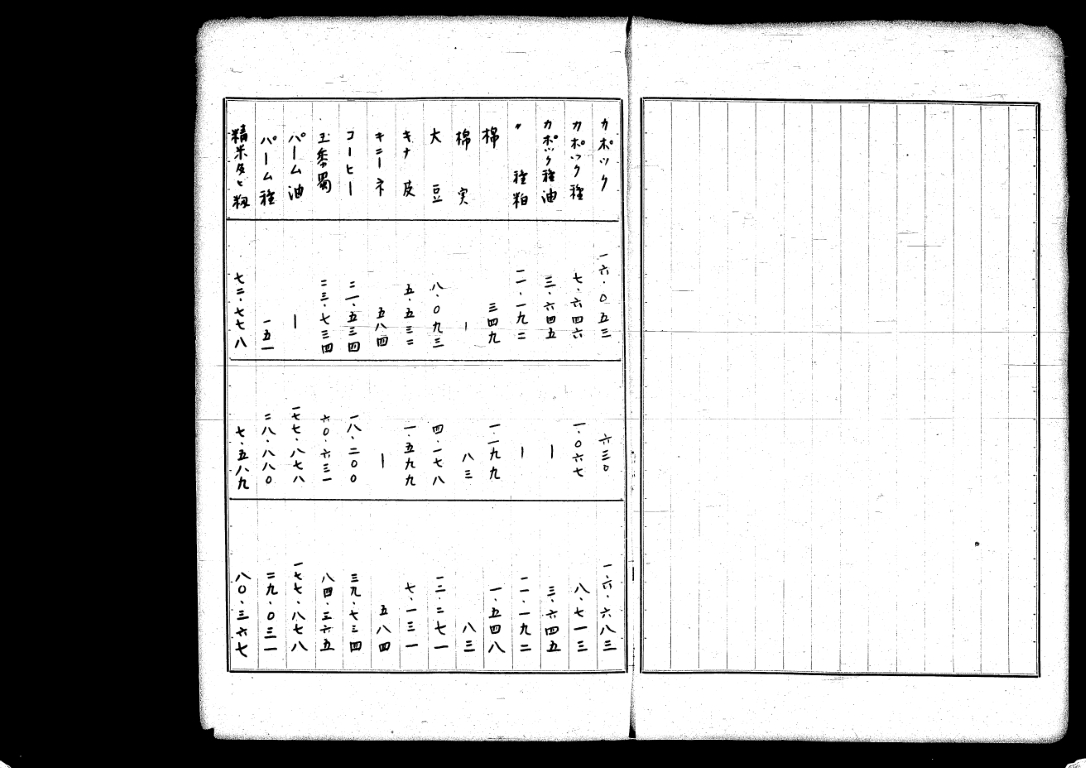 カポック 一六・〇五三 六三〇 一六・六八三
カポック種 七・六四六 一・〇六七 八・七一三
カポック種油 三・六四五 ー 三・六四五
〃 種粕 一一・一九二 ー 一一・一九二
棉 三四九 一・一九九 一・五四八
棉実 ー 八三 八三
大豆 八・〇九三 四・一七八 一二・二七一
キナ皮 五・五三二 一・五九九 七・一三一
キニーネ 五八四 ー 五八四
コーヒー 二一・五三四 一八・二〇〇 三九・七三四
玉黍蜀 二三・七三四 六〇・六三一 八四・三六五
パーム油 ー 一七七・八七八 一七七・八七八
パーム種 一五一 二八・八八〇 二九・〇三一
精米及ヒ籾 七二・七七八 七・五八九 八〇・三六七